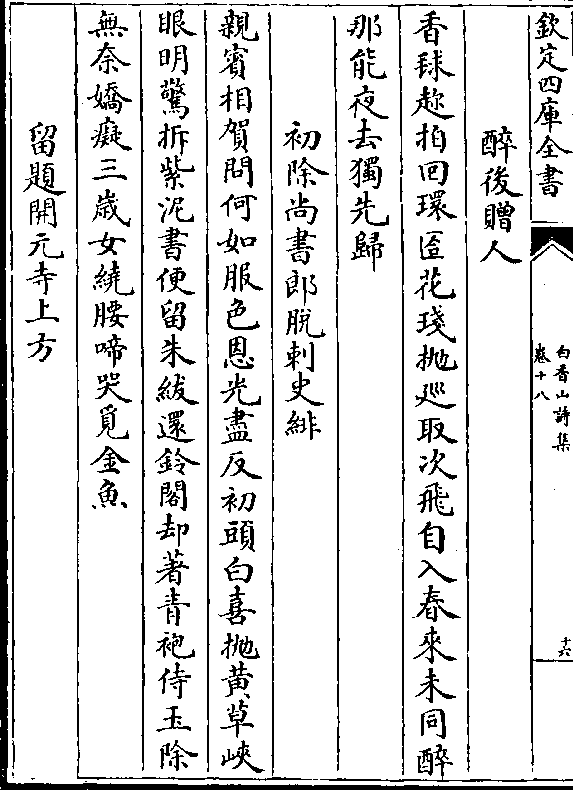 欽定四庫全書
白香山詩集
卷十八
十六
醉後贈人
香毬趂拍回環匼花琖抛巡取次飛自入春來未同醉
那能夜去獨先歸
初除尚書郎脫刺史緋
親賓相賀問何如服色恩光盡反初頭白喜抛黃草峽
眼明驚拆紫泥書便留朱紱還鈴閣却著青袍侍玉除
無奈嬌癡三歲女繞腰啼哭覓金魚
留題開元寺上方